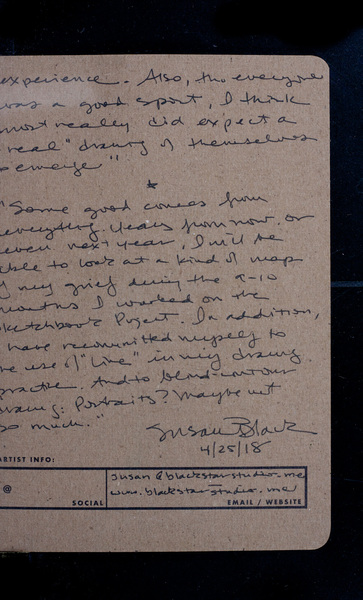 experience. Also, tho everyone
was a good sport, I think
most really did expect a
"real" drawing of themselves
to emerge."
*
"Some good comes from
everything. Years from now, or
even next year, I will be
able to look at a kind of map
of my grief during the 9-10
months I worked on the
Sketchbook Project. In addition,
I have recommitted myself to
the use of "line" in my drawing
practice. And to blind-contour
drawing. Portraits? Maybe not
so much."
Susan Black
4/25/18
ARTIST INFO:
@
SOCIAL
susan@blackstarstudio.me
www.blackstarstudio.me
EMAIL / WEBSITE